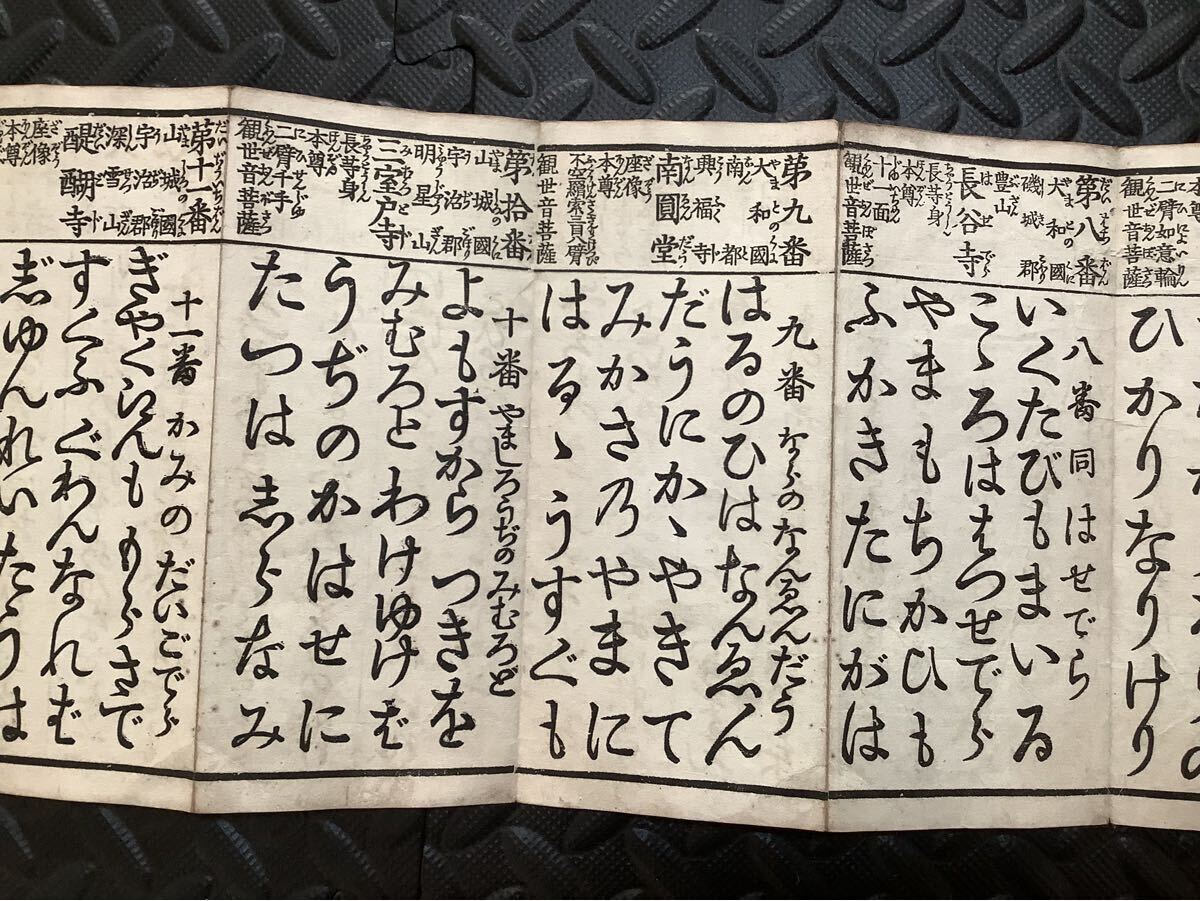 二臂如意輪
観世音菩薩
ひかりなりけり
第八番
大和國
磯城郡
豊山
長谷寺
長等身
本尊
十一面
観世音菩薩
八番 同はせでら
いくたびもまいる
こゝろははつせでら
やまもちかひも
ふかきたにがは
第九番
大和國
南都
興福寺
南圓堂
座像
本尊
不空羂索三目八臂
観世音菩薩
九番 ならのなんゑんだう
はるのひはなんゑん
だうにかゝやきて
みかさのやまに
はるゝうすぐも
第拾番
山城國
宇治郡
明星山
三室戸寺
長等身
本尊
二臂千手
観世音菩薩
十番 やましろうぢのみむろど
よもすからつきを
みむろとわけゆけば
うぢのかはせに
たつはしらなみ
第十一番
山城國
宇治郡
深雪山
醍醐寺
座像
本尊
十一番 かみのだいごでら
ぎやくゑんももらさで
すくふぐわんなれば
じゆんれいたうは